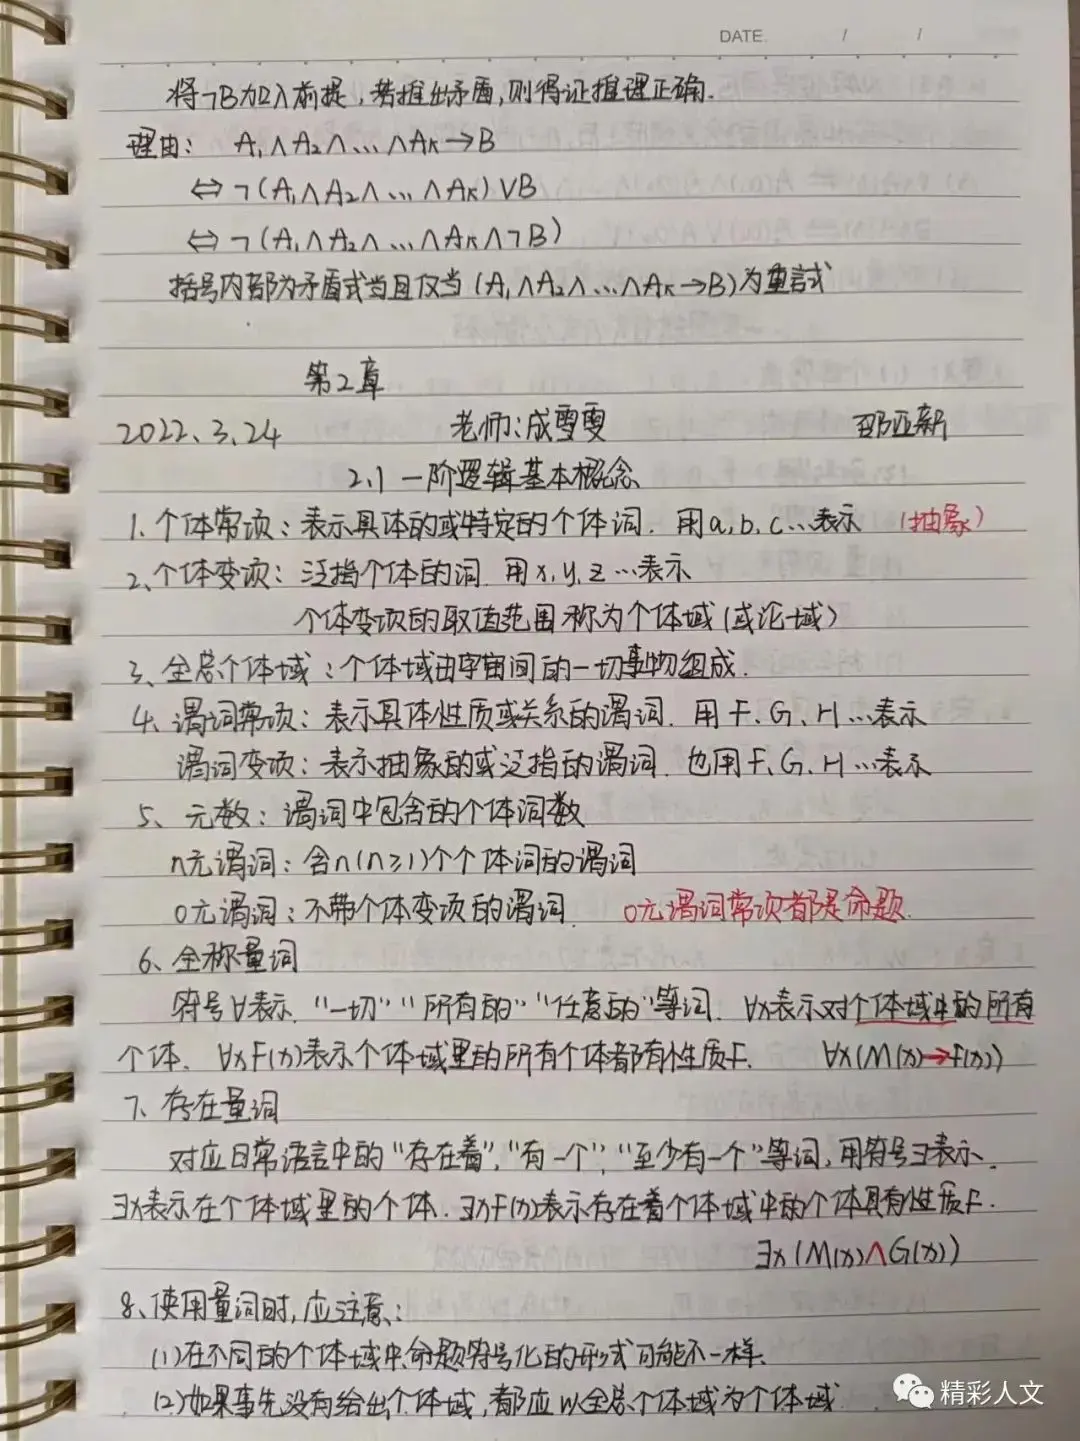 DATE / /
将¬B加入前提，若推出矛盾，则得证推理正确.
理由： A₁∧A₂∧…∧Aₖ→B
⇔¬(A₁∧A₂∧…∧Aₖ)∨B
⇔¬(A₁∧A₂∧…∧Aₖ∧¬B)
括号内部为矛盾式当且仅当(A₁∧A₂∧…∧Aₖ→B)为重言式
第2章
2022.3.24 老师:成雪雯 邵亚新
2.1 一阶逻辑基本概念
1.个体常项：表示具体的或特定的个体词. 用a,b,c…表示 (抽象)
2、个体变项：泛指个体的词. 用x,y,z…表示
个体变项的取值范围称为个体域(或论域)
3、全总个体域：个体域由宇宙间的一切事物组成.
4、谓词常项：表示具体性质或关系的谓词. 用F、G、H…表示
谓词变项：表示抽象的或泛指的谓词. 也用F、G、H…表示
5、元数：谓词中包含的个体词数
n元谓词：含n(n≥1)个个体词的谓词
0元谓词：不带个体变项的谓词. 0元谓词常项都是命题.
6、全称量词
符号∀表示“一切”“所有的”“任意的”等词. ∀x表示对个体域中的所有
个体. ∀xF(x)表示个体域里的所有个体都有性质F. ∀x(M(x)→F(x))
7、存在量词
对应日常语言中的“存在着”,“有一个”,“至少有一个”等词,用符号∃表示.
∃x表示在个体域里的个体. ∃xF(x)表示存在着个体域中的个体具有性质F.
∃x(M(x)∧G(x))
8、使用量词时,应注意:
(1)在不同的个体域中,命题符号化的形式可能不一样.
(2)如果事先没有给出个体域,都应以全总个体域为个体域.
精彩人文